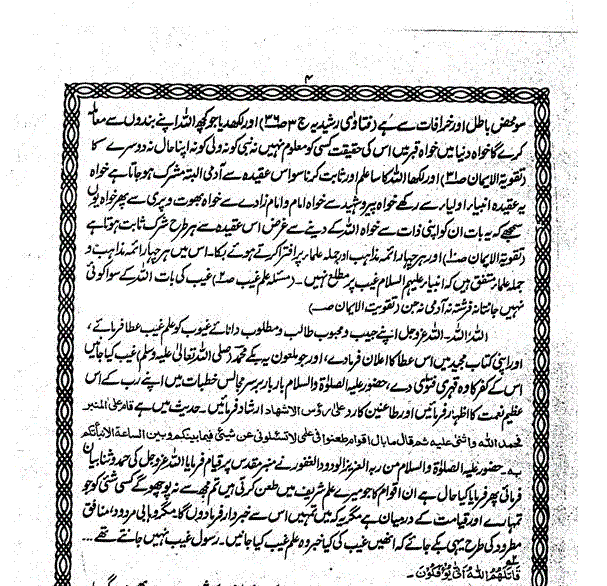 ۴
سو محض باطل اور خرافات سے ہے (فتاوی رشیدیہ ج ۳ ص۳۶) اور لکھدیا جو کچھ اللہ اپنے بندوں سے معاملہ
کرے گا خواہ دنیا میں خواہ قبر میں اس کی حقیقت کسی کو معلوم نہیں نہ نبی کو نہ ولی کو نہ اپنا حال نہ دوسرے کا
(تقویۃ الایمان ص۳۱) اور لکھا اللہ کا سا علم اور ثابت کرنا سو اس عقیدہ سے آدمی البتہ مشرک ہو جاتا ہے خواہ
یہ عقیدہ انبیاء اولیاء سے رکھے خواہ پیر و شہید سے خواہ امام و امام زادے سے خواہ بھوت و پری سے پھر خواہ یوں
سمجھے کہ یہ بات ان کو اپنی ذات سے خواہ اللہ کے دینے سے غرض اس عقیدہ سے ہر طرح شرک ثابت ہوتا ہے
(تقویۃ الایمان ص۱۰) اور ہر چہار ائمہ مذاہب اور جملہ علماء پر افترا کرتے ہوئے بکا۔ اس میں ہر چہار ائمہ مذاہب و
جملہ علماء متفق ہیں کہ انبیاء علیہم السلام غیب پر مطلع نہیں۔ (مسئلہ علم غیب ص۲) غیب کی بات اللہ کے سوا کوئی
نہیں جانتا نہ فرشتہ نہ آدمی نہ جن (تقویت الایمان ص)
اللہ اللہ۔ اللہ عزوجل اپنے حبیب و محبوب طالب و مطلوب دانائے غیوب کو علم غیب عطا فرمائے،
اور اپنی کتاب مجید میں اس عطا کا اعلان فرمادے، اور جو ملعون یہ بکے محمد (صلی اللہ تعالیٰ علیہ وسلم) غیب کیا جانیں
اس کے کفر کا وہ قہری فتویٰ دے، حضور علیہ الصلوٰۃ والسلام بار بار بر سر مجالس خطبات میں اپنے رب کے اس
عظیم نعمت کا اظہار فرمائیں اور طاعنین کا رد علیٰ رؤس الاشہاد ارشاد فرمائیں۔ حدیث میں ہے قام علی المنبر
فحمد اللہ واثنی علیہ ثم قال ما بال اقوام طعنوا فی علمی لا تسئلونی عن شیئ فیما بینکم وبین الساعۃ الا نبأتکم
بہ۔ حضور علیہ الصلوٰۃ والسلام من ربہ العزیز الودود الغفور نے منبر مقدس پر قیام فرمایا اللہ عزوجل کی حمد و ثنا بیان
فرمائی پھر فرمایا کیا حال ہے ان اقوام کا جو میرے علم شریف میں طعن کرتی ہیں تم مجھ سے نہ پوچھو گے کسی شئی کو جو
تمہارے اور قیامت کے درمیان ہے مگر یہ کہ میں تمہیں اس سے خبردار فرمادوں گا، مگر وہابی مردود منافق
مطرود کی طرح یہی بکے جائے کہ انھیں غیب کی کیا خبر وہ علم غیب کیا جانیں۔ رسول غیب نہیں جانتے تھے...
قَاتَلَهُمُ اللهُ اَنّٰى يُؤْفَكُوْنَ۔